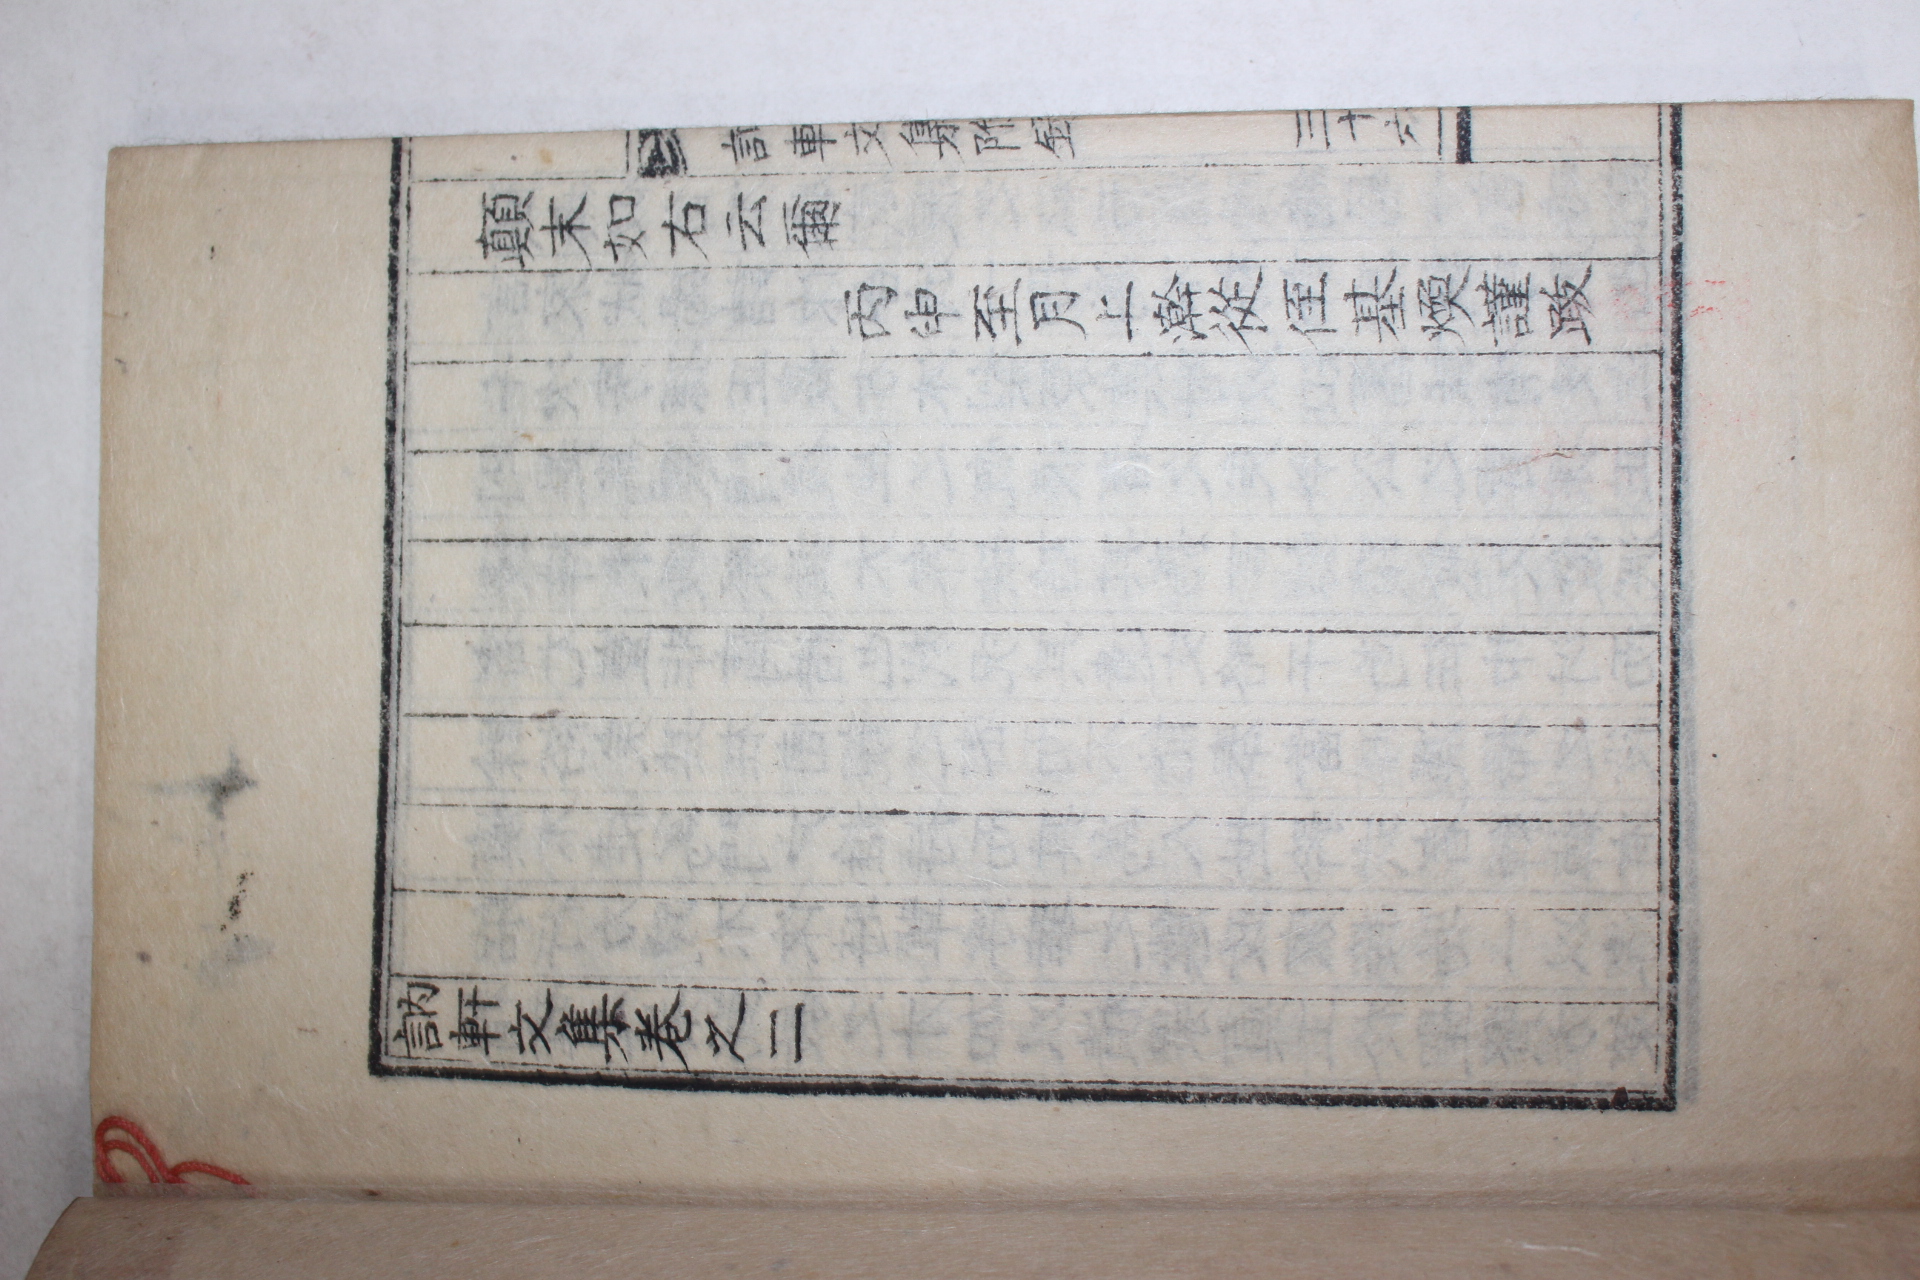 訥軒文集附錄
三十六
顛末如右云爾
丙申至月上澣從侄基煥謹跋
訥軒文集卷之二